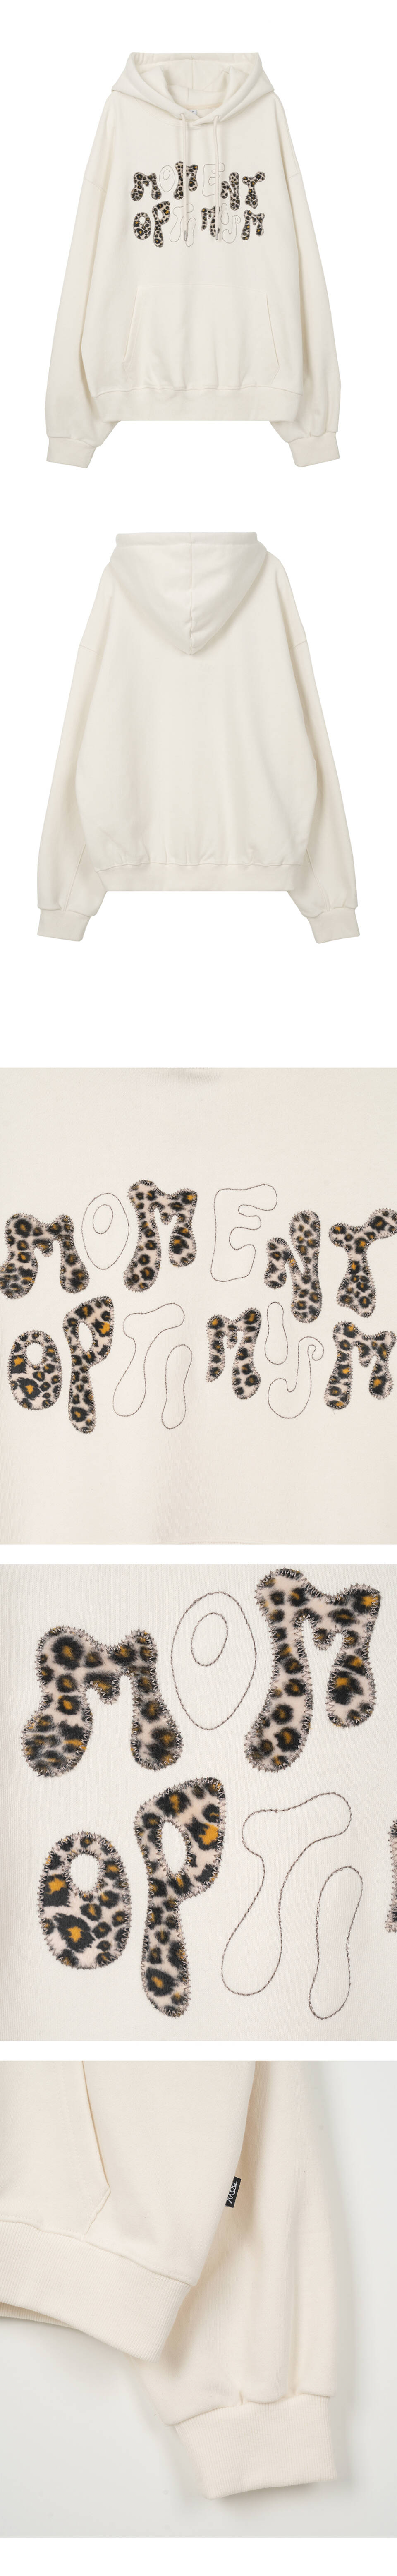 MOMENT
OPTIMISM
MOMENT
OPTIMISM
MOM
OPTI